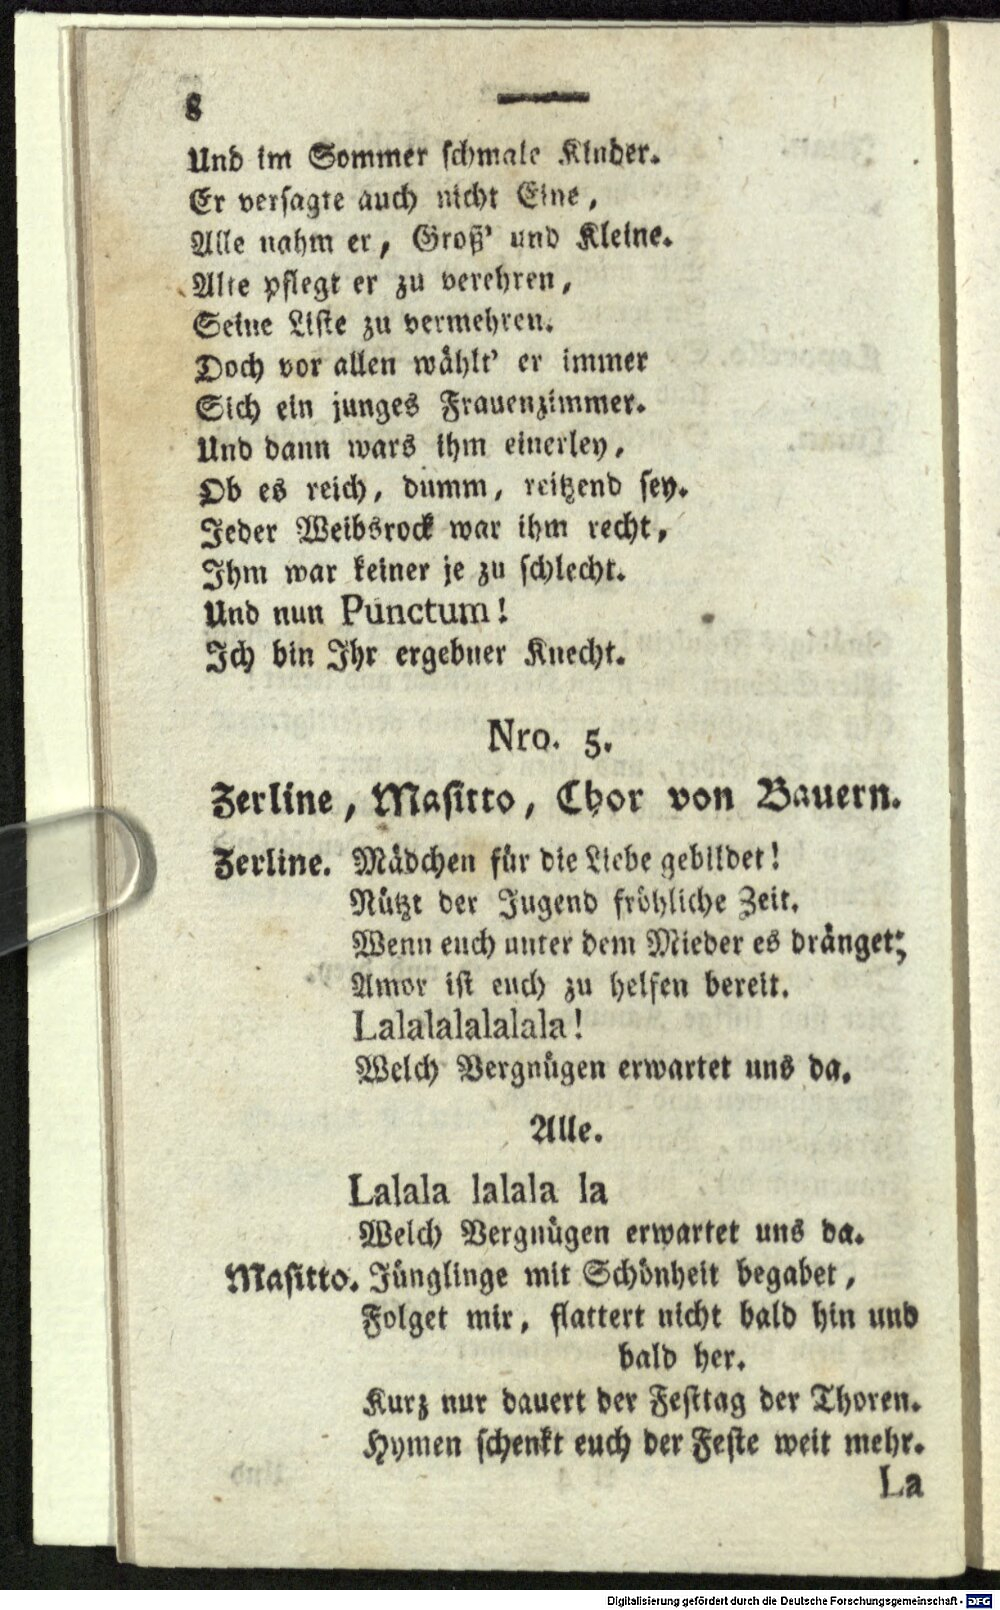 8
Und im Sommer schmale Kinder.
Er versagte auch nicht Eine,
Alle nahm er, Groß' und Kleine.
Alte pflegt er zu verehren,
Seine Liste zu vermehren.
Doch vor allen wählt' er immer
Sich ein junges Frauenzimmer.
Und dann wars ihm einerley,
Ob es reich, dumm, reitzend sey.
Jeder Weibsrock war ihm recht,
Ihm war keiner je zu schlecht.
Und nun Punctum!
Ich bin Ihr ergebner Knecht.
Nro. 5.
Zerline, Masitto, Chor von Bauern.
Zerline. Mädchen für die Liebe gebildet!
Nützt der Jugend fröhliche Zeit.
Wenn euch unter dem Mieder es dränget;
Amor ist euch zu helfen bereit.
Lalalalalalala!
Welch Vergnügen erwartet uns da.
Alle.
Lalala lalala la
Welch Vergnügen erwartet uns da.
Masitto. Jünglinge mit Schönheit begabet,
Folget mir, flattert nicht bald hin und
bald her.
Kurz nur dauert der Festtag der Thoren.
Hymen schenkt euch der Feste weit mehr.
La
Digitalisierung gefördert durch die Deutsche Forschungsgemeinschaft - DFG